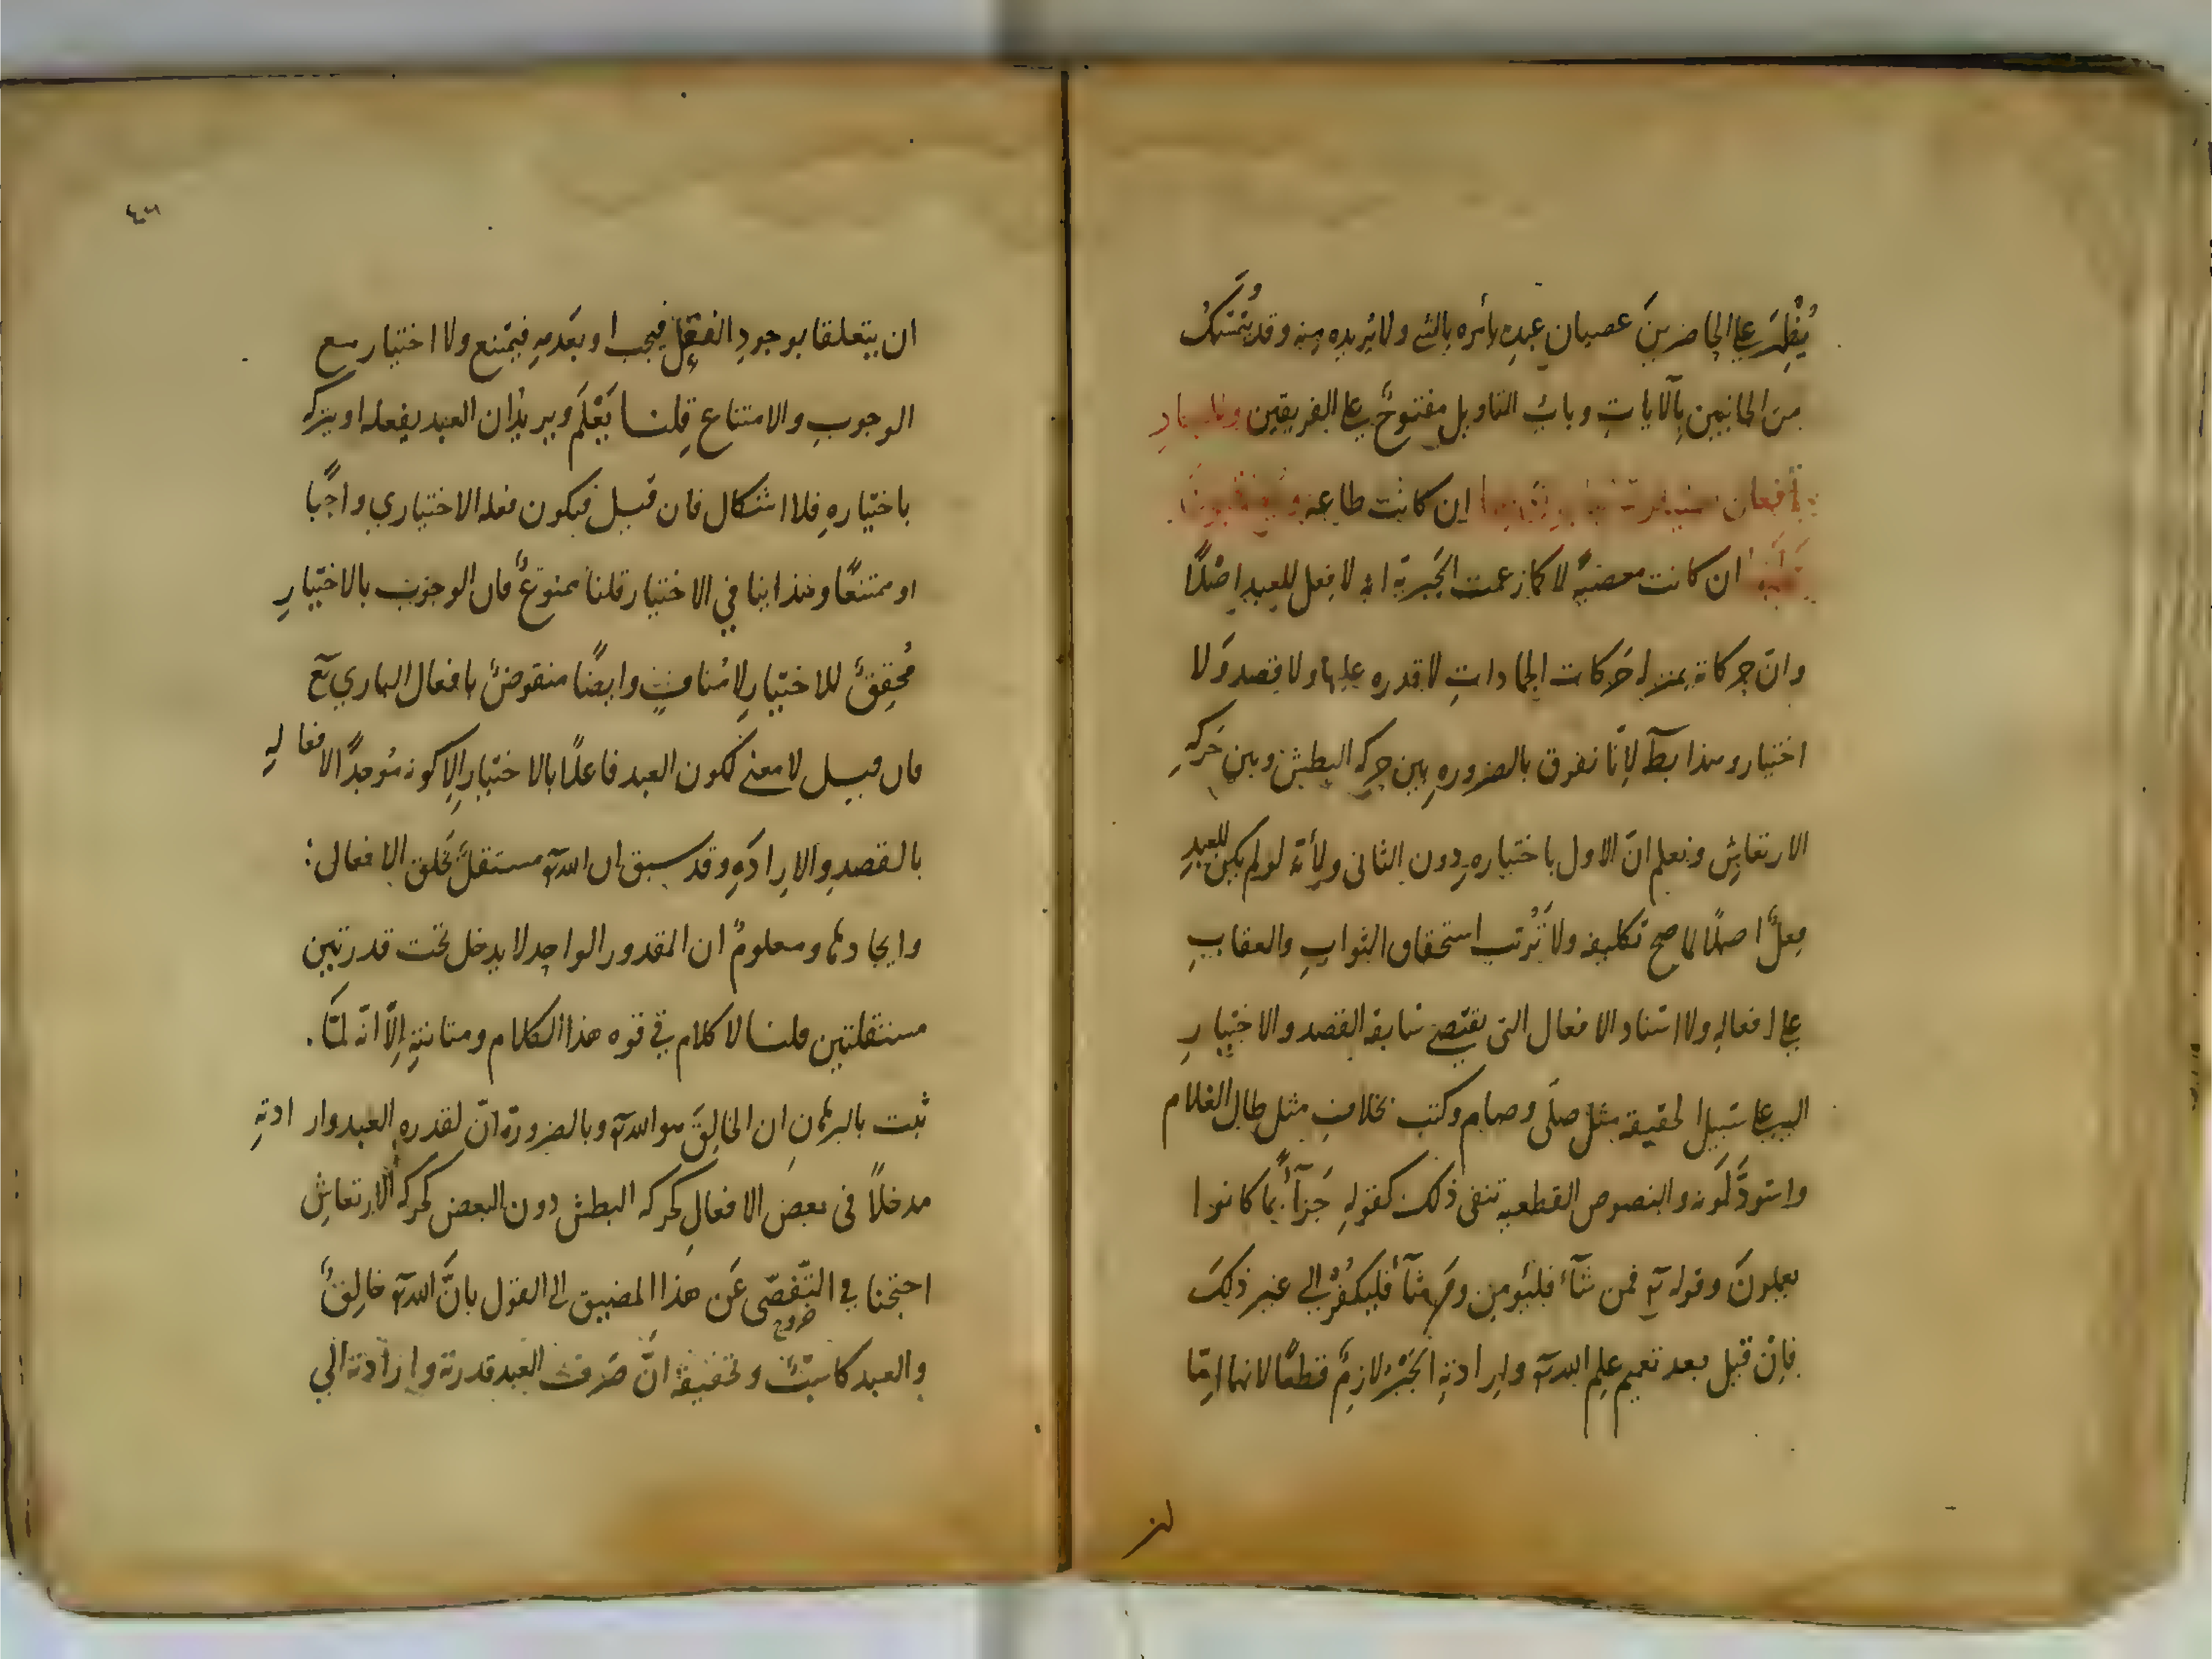 يُظْهِرَ على الحاضرينَ عصيان عبدِه يأمره بالشئ ولا يُريده منه وقد يُتَمَسَّكُ
من الجانبين بالآيات وبابُ التاويل مفتوحٌ على الفريقين وللعبادِ
أفعال اختيارية يثابون بها ان كانت طاعة ويعاقبونَ
عليها ان كانت معصيةً لا كما زعمت الجَبرية انه لا فِعل للعبدِ اصْلًا
وانّ حركاته بمنزلة حَركات الجماداتِ لا قدره عليها ولا قصد وَلا
اختيار وهذا بط لِاَنّا نفرق بالضروره بين حركه البطش وبين حَركهِ
الارتعاشِ ونعلم انّ الاول باختياره دون الثانى ولِأنّه لو لم يكن للعبدِ
فِعلٌ اصلًا لما صح تكليفه ولا تَرُتّب استحقاق الثوابِ والعقابِ
على افعالهِ ولا اسناد الافعال التى يقتضى سَابقه القصد والاختيارِ
اليه على سَبيل الحقيقه مثل صلّى وصام وكتب بخلافِ مثل طال الغلام
واسْودَّ لَونه والنصوص القطعيه تنفى ذلك كقولهِ جَزآءً بما كانوا
يعملونَ وقوله تع فمن شآءَ فليُومِن ومَن شآءَ فليَكفُرْ الى غير ذلِكَ
فاِنْ قيل بعد تعميم علمِ الله تع واِرادتِه الجَبْرُ لازِمٌ قطعًا لانهما اِمّا
ان يتعلقا بوجودِ الفعل فيجب او بعَدمِهِ فيمْتنع ولا اختيار مع
الوجوبِ والامتناع قلنا يَعْلَم ويريدُ ان العبد يفعله او يتركه
باختيارهِ فلا اشكال فان قيل فيكون فعله الاختياري واجبًا
او ممتنعًا وهذا ينافي الاختيار قلنا ممنوعٌ فان الوجوب بالاختيارِ
مُحقِقٌ للاختيارِ لا مُنافٍ وايضًا منقوضٌ بافعال الباري تع
فان قيل لا معنى لكون العبد فاعلًا بالاختيار الا كونه مُوجدًا لافعالهِ
بالقصدِ والارادَهِ وقد سبق ان الله تع مستقلٌ بخلق الافعال
وايجادها ومعلومٌ ان المقدور الواحد لا يدخل تحت قدرتين
مستقلتين قلنا لا كلام في قوه هذا الكلام ومتانتهِ اِلّا انّه لمّا
ثبت بالبرهانِ ان الخالِقَ هو الله تع وبالضرورة انّ لقدره العبد وارادتهِ
مدخلاً فى بعض الافعالِ كحركه البطش دون البعض كحركه الارتعاشِ
احتجنا في التّفَصّى عَن هذا المضيق الى القول بانَّ الله تع خالِقٌ
خروج
والعبد كاسِبٌ وتحقيقه انّ صَرف العبد قدرته وارادته الى